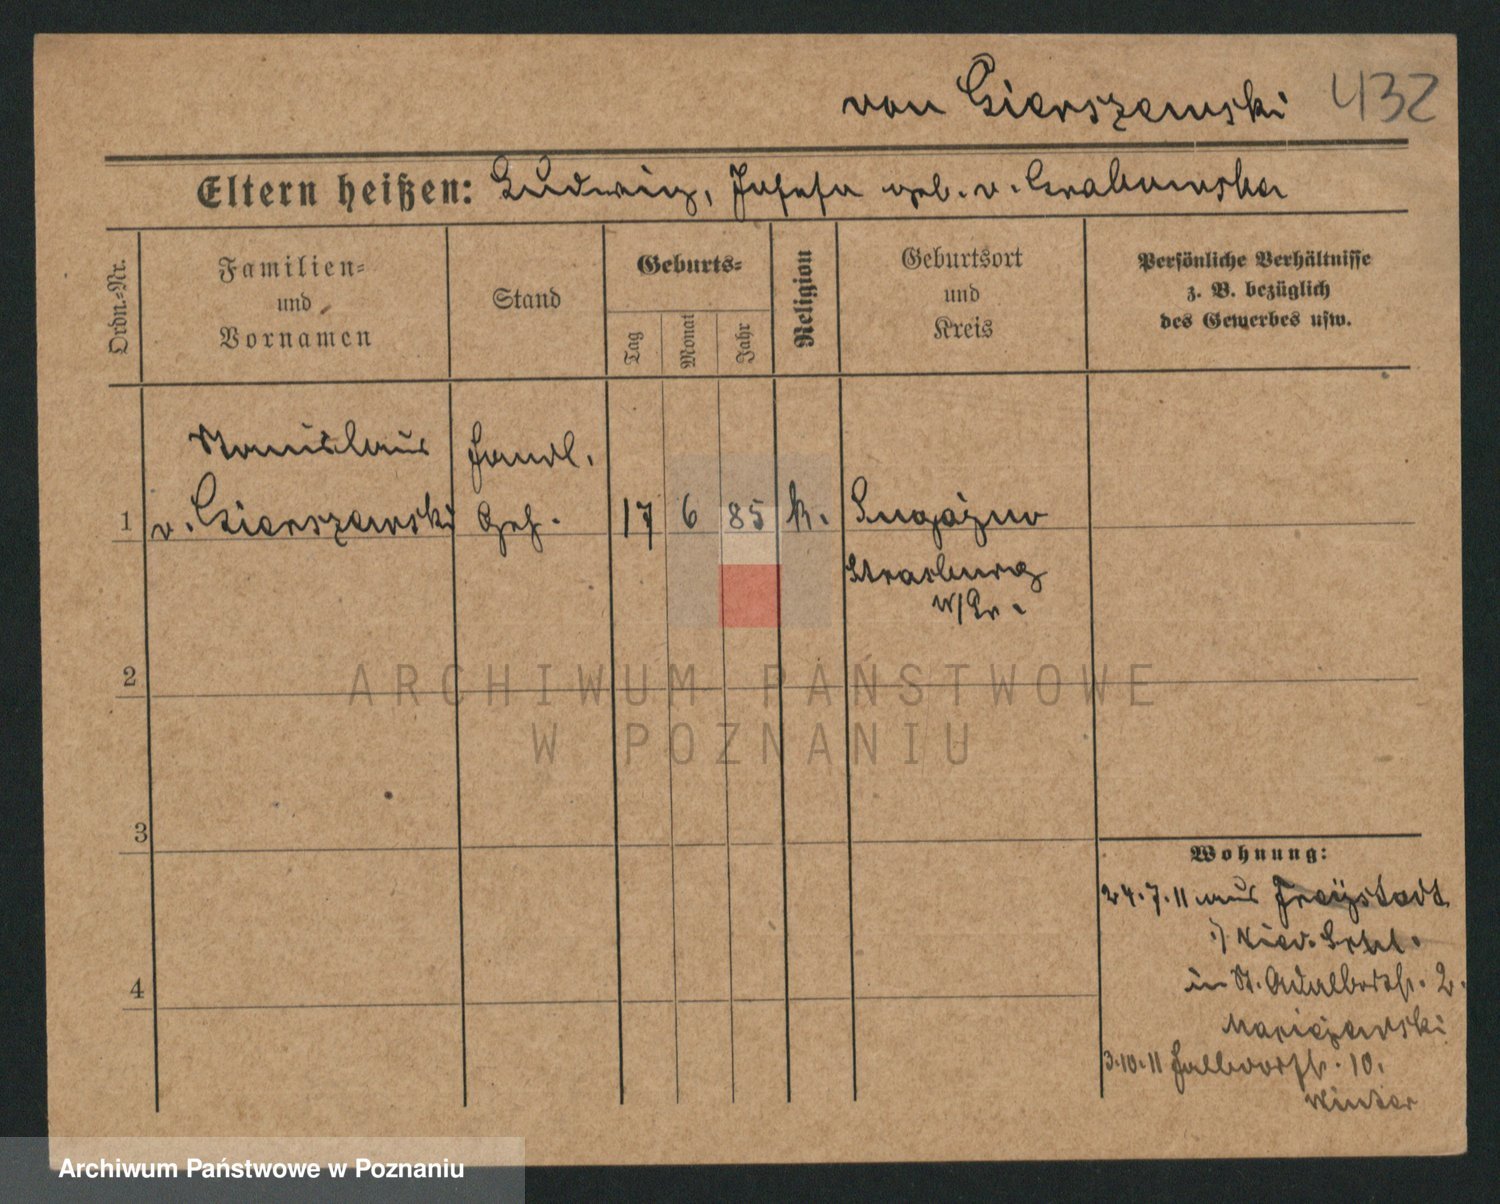 von Gierszewski 432
Eltern heißen: Ludwig, Josefa geb. v. Grabowska
Ordn.-Nr.
Familien-
und
Vornamen
Stand
Geburts-
Tag
Monat
Jahr
Religion
Geburtsort
und
Kreis
Persönliche Verhältnisse
z. B. bezüglich
des Gewerbes usw.
Stanislaus Handl.
1 v. Gierszewski Geh. 17 6 85 k.
Strasburg
W/Pr.
2
ARCHIWUM PAŃSTWOWE
W POZNANIU
3
Wohnung:
24.7.11 aus Freystadt
i/ Nied.
4
in St. Adalbertstr. 2.
3.10.11 Halbdorfstr. 10.
Winter
Archiwum Państwowe w Poznaniu